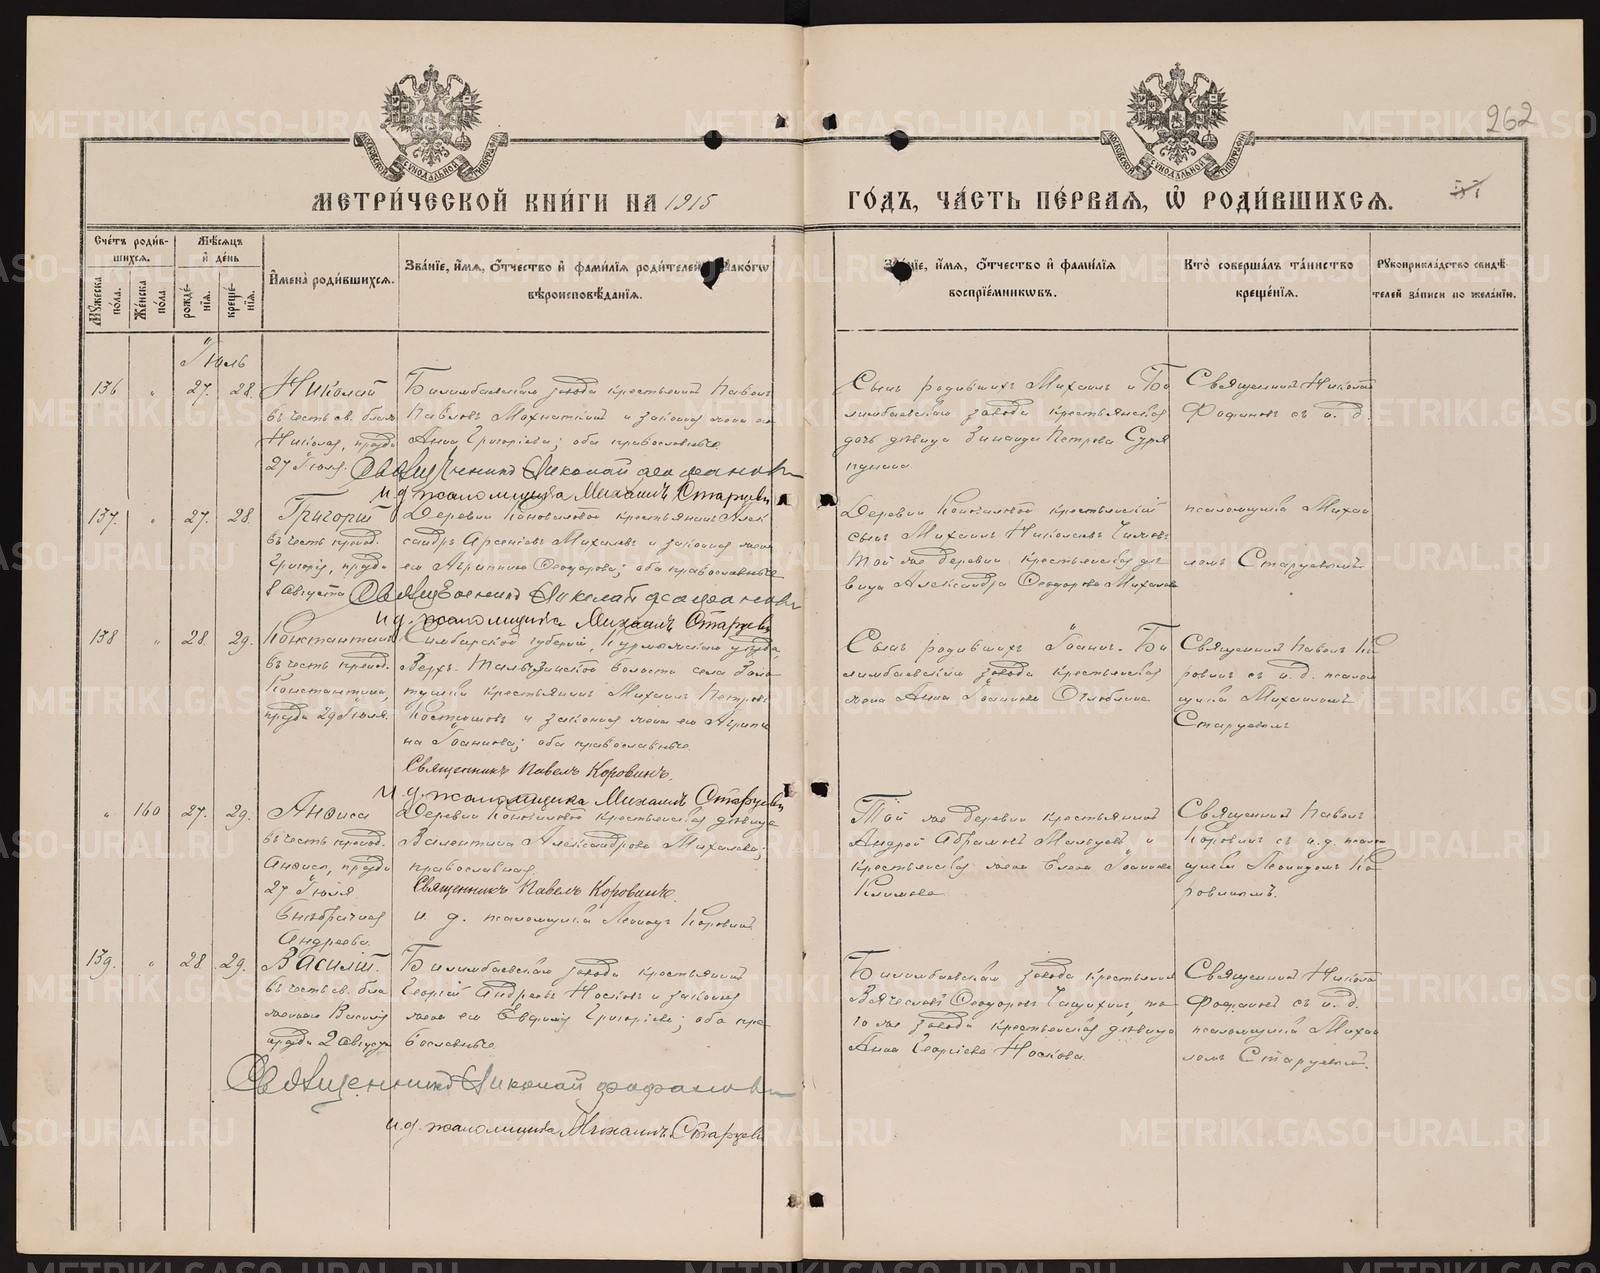 262
МЕТРИ́ЧЕСКОЙ КНИ́ГИ НА 1915 ГО́ДЪ, ЧА́СТЬ ПЕ́РВАЯ, Ѡ҆ РОДИ́ВШИХСЯ.
Сче́тъ роди́вшихся.
Мѣ́сяцъ и҆ де́нь
Му́жеска по́ла.
Же́нска по́ла
рожде́нїя.
креще́нїя.
И҆мена̀ роди́вшихся.
Зва́нїе, и҆́мя, ѻ҆́тчество и҆ фами́лїя роди́телей, и҆ како́гѡ
вѣроисповѣ́данїя.
Зва́нїе, и҆́мя, ѻ҆́тчество и҆ фами́лїя
воспрїе́мникѡвъ.
Кто̀ соверша́лъ та́инство
креще́нїя.
Рꙋкоприкла́дство свидѣ́-
телей за́писи по жела́нїю.
Іюль
136 " 27. 28.
Николай
въ честь св. блаж.
Николая, празд.
27 Іюля.
Билимбаевскаго завода крестьянинъ Павелъ
Павловъ Махнаткинъ и законная жена его
Анна Григоріева; оба православные.
Священникъ Николай Фофановъ
и д. псаломщика Михаилъ Старцевъ
Сынъ родившихъ Михаилъ и Би
лимбаевскаго завода крестьянская
дочь дѣвица Зинаида Петрова
Священникъ Николай
Фофановъ съ и. д.
137. " 27. 28.
Григорій
въ честь препод.
Григорія, празд.
8 Августа
Деревни Коноваловой крестьянинъ Алек
сандръ Арсеніевъ Михалевъ и законная жена
его Агриппина Ѳеодорова; оба православные
Священникъ Николай Фофановъ
и д. псаломщика Михаилъ Старцевъ
Деревни Коноваловой крестьянскій
сынъ Михаилъ Николаевъ
той же деревни крестьянская дѣ
вица Александра Ѳеодорова Михалева
псаломщика Михаи
ломъ Старцевымъ
138 " 28. 29.
Константинъ
въ честь препод.
Константина,
празд. 29 Іюля.
Симбирской губерніи, Курмышскаго уѣзда,
волости села
крестьянинъ Михаилъ Петровъ
и законная жена его Агрипи
на Іоаннова; оба православные.
Священникъ Павелъ Коровинъ.
и д. псаломщика Михаилъ Старцевъ
Сынъ родившихъ Іоаннъ. Би
лимбаевскаго завода крестьянская
жена Анна Іоаннова
Священникъ Павелъ Ко
ровинъ съ и. д. псалом
щика Михаиломъ
Старцевымъ
" 160 27. 29.
Анѳиса
въ честь препод.
Анѳисы, празд.
27 Іюля
Внѣбрачная
Андреева.
Деревни Коноваловой крестьянская дѣвица
Валентина Александрова Михалева;
православная.
Священникъ Павелъ Коровинъ.
и. д. псаломщика Леонидъ Коровинъ
Той же деревни крестьянинъ
Андрей Абрамовъ и
крестьянская жена Елена Іоаннова
Климова
Священникъ Павелъ
Коровинъ съ и. д. псалом
щика Леонидомъ Ко
ровинымъ.
139. " 28 29.
Василій.
въ честь св. бла
женнаго Василія
празд. 2 Августа
Билимбаевскаго завода крестьянинъ
Георгій Андреевъ Носковъ и законная
жена его Евфимія Григоріева; оба пра
вославные.
Священникъ Николай Фофановъ
и д. псаломщика Михаилъ Старцевъ
Билимбаевскаго завода крестьянинъ
Вячеславъ Ѳеодоровъ и то
го же завода крестьянская дѣвица
Анна Георгіева Носкова.
Священникъ Никола
Фофановъ съ и. д.
псаломщика Михаи
ломъ Старцевымъ.
METRIKI.GASO-URAL.RU